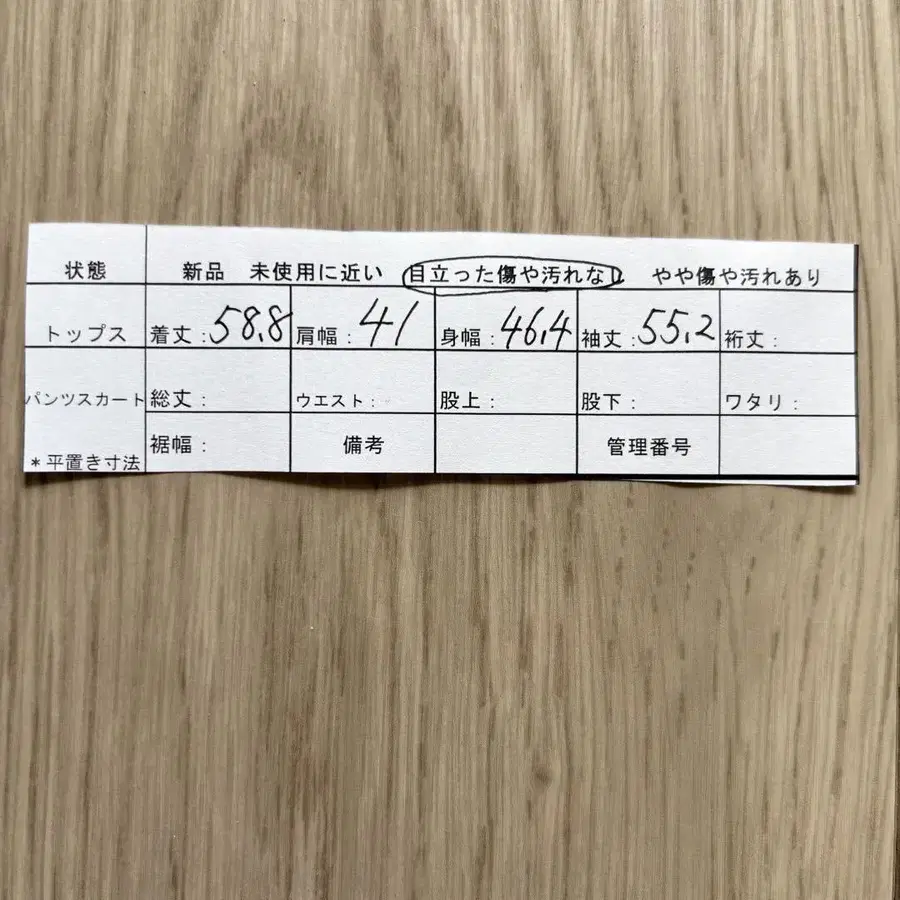 状態 新品 未使用に近い 目立った傷や汚れなし やや傷や汚れあり
トップス 着丈:58.8 肩幅:41 身幅:46.4 袖丈:55.2 裄丈:
パンツスカート 総丈: ウエスト: 股上: 股下: ワタリ:
*平置き寸法 裾幅: 備考 管理番号